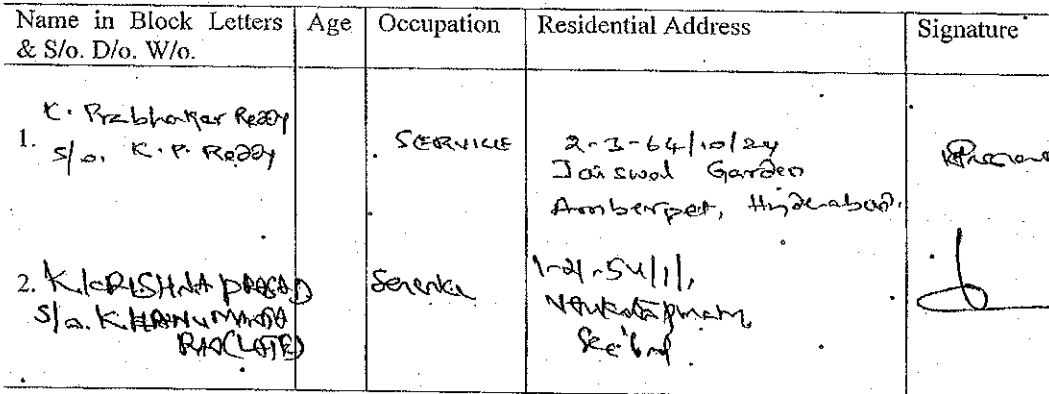 Name in Block Letters & S/o. D/o. W/o. Age Occupation Residential Address Signature
1. K. Prabhakar Reddy
S/o. K. P. Reddy
SERVICE
2-3-64/10/24
Jaiswal Garden
Amberpet, Hyderabad.
2. K. KRISHNA PRASAD
S/o. K. HANUMANTA
RAO (LATE)
Service
1-21-54/1/1,
Venkatapuram,
Sec'bad